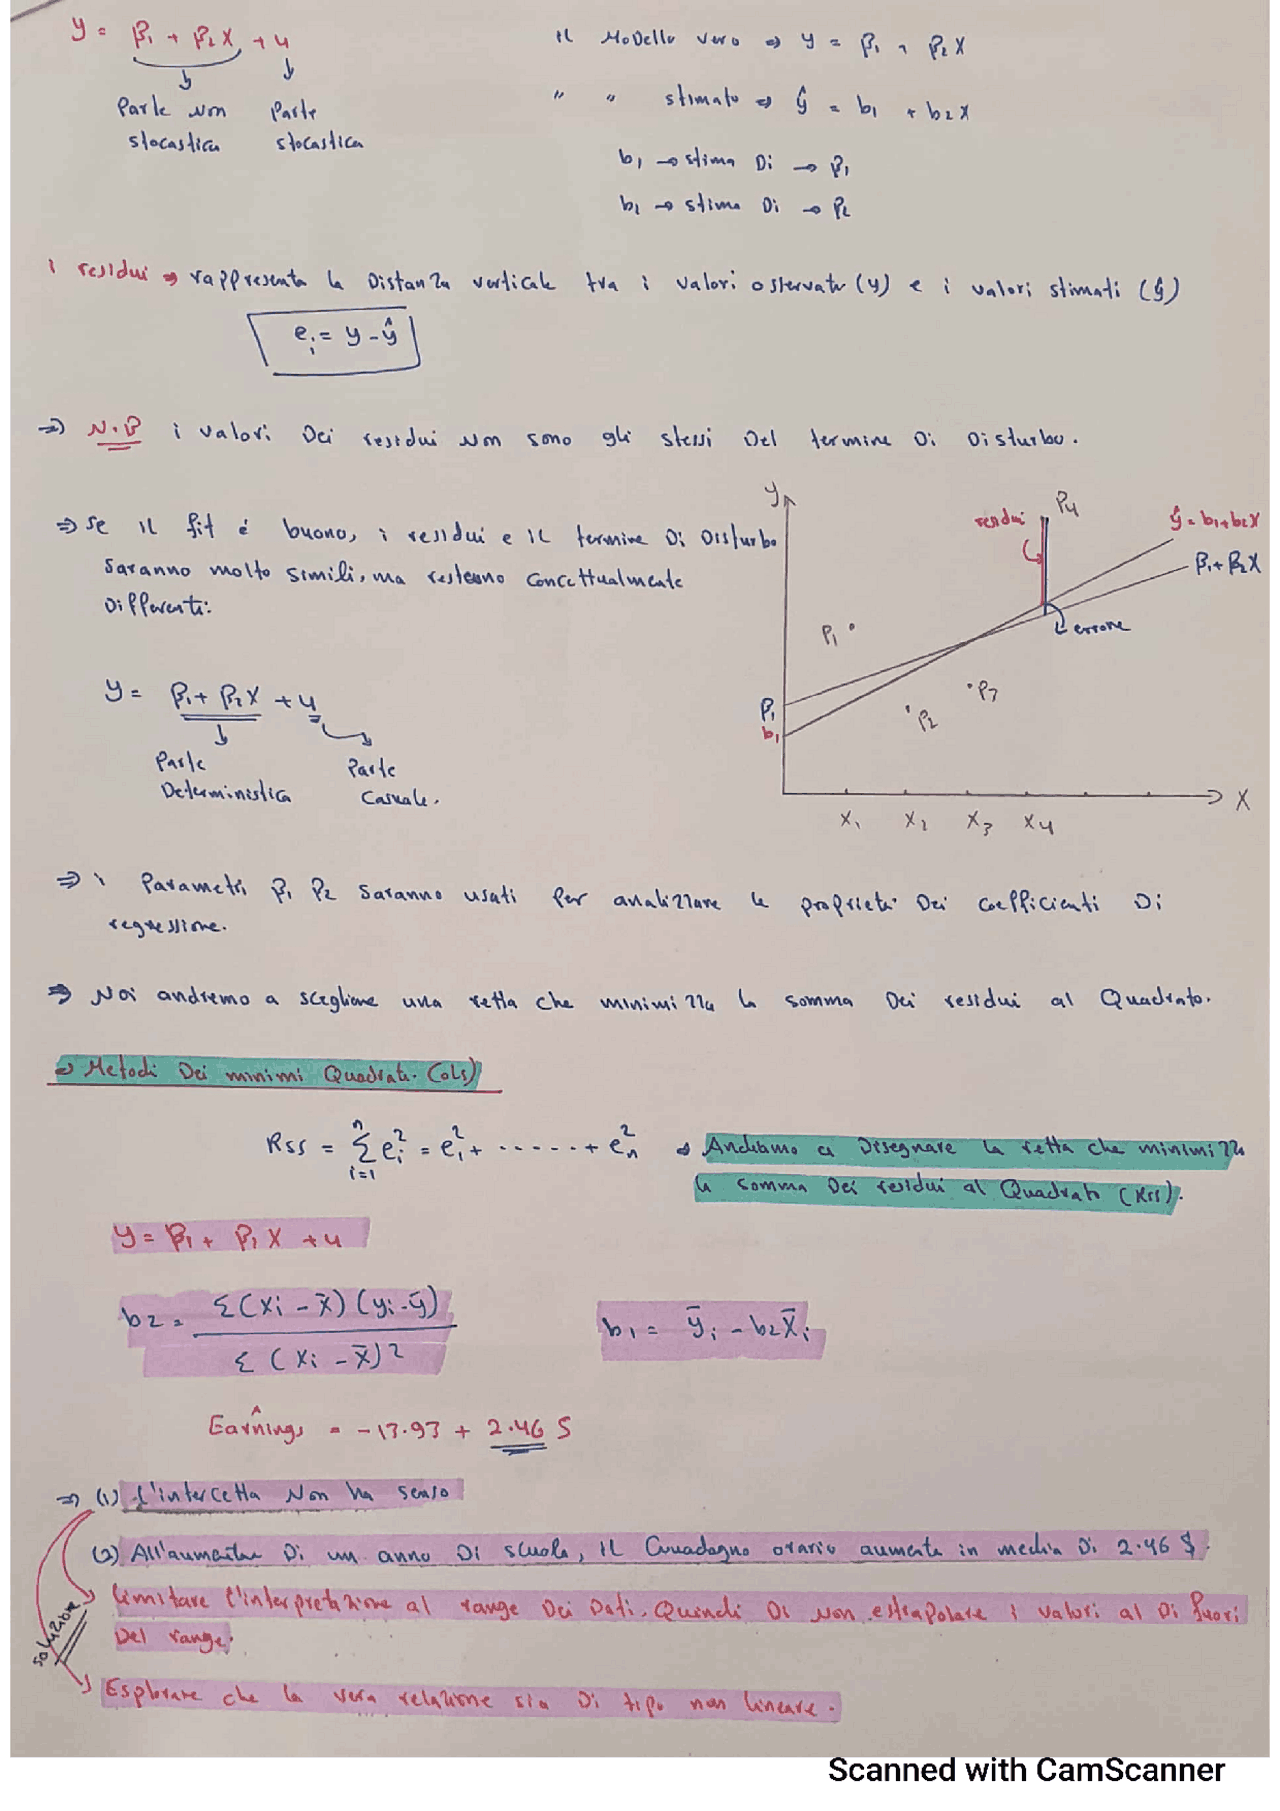 y = β₁ + β₂X + u
Parte non stocastica
Parte stocastica
Il Modello vero ⇒ y = β₁ + β₂X
" " stimato ⇒ ŷ = b₁ + b₂X
b₁ → stima Di → β₁
b₂ → stima Di → β₂
i residui ⇒ rappresenta la Distanza verticale tra i valori osservati (y) e i valori stimati (ŷ)
eᵢ = y - ŷ
⇒ N.B i valori Dei residui non sono gli stessi Del termine Di Disturbo.
⇒ se il fit é buono, i residui e il termine Di Disturbo
saranno molto simili, ma restano concettualmente
Differenti:
y = β₁ + β₂X + u
Parte Deterministica
Parte Casuale.
y
residui
P4
ŷ = b₁ + b₂X
β₁ + β₂X
errore
P₁
P3
P2
β₁
b₁
X₁ X₂ X₃ X4
X
⇒ i Parametri β₁ β₂ saranno usati Per analizzare le proprietà Dei coefficienti Di
regressione.
⇒ Noi andremo a scegliere una retta che minimizza la somma Dei residui al Quadrato.
⇒ Metodi Dei minimi Quadrati (OLS)
Rss = Σⁿᵢ₌₁ eᵢ² = e₁² + ...... + eₙ²
→ Andiamo a Disegnare la retta che minimizza
la somma Dei residui al Quadrato (Rss).
y = β₁ + β₁X + u
b₂ = Σ(Xᵢ - X̄)(yᵢ - ȳ) / Σ(Xᵢ - X̄)²
b₁ = ȳᵢ - b₂X̄ᵢ
Earnîngs = -13.93 + 2.46 S
⇒ (1) l'intercetta Non ha senso
(2) All'aumentare Di un anno Di scuola, il Guadagno orario aumenta in media Di 2.46 $.
limitare l'interpretazione al range Dei Dati. Quindi Di non estrapolare i valori al Di Fuori
Del range.
soluzione
Esplorare che la vera relazione sia Di tipo non lineare.
Scanned with CamScanner